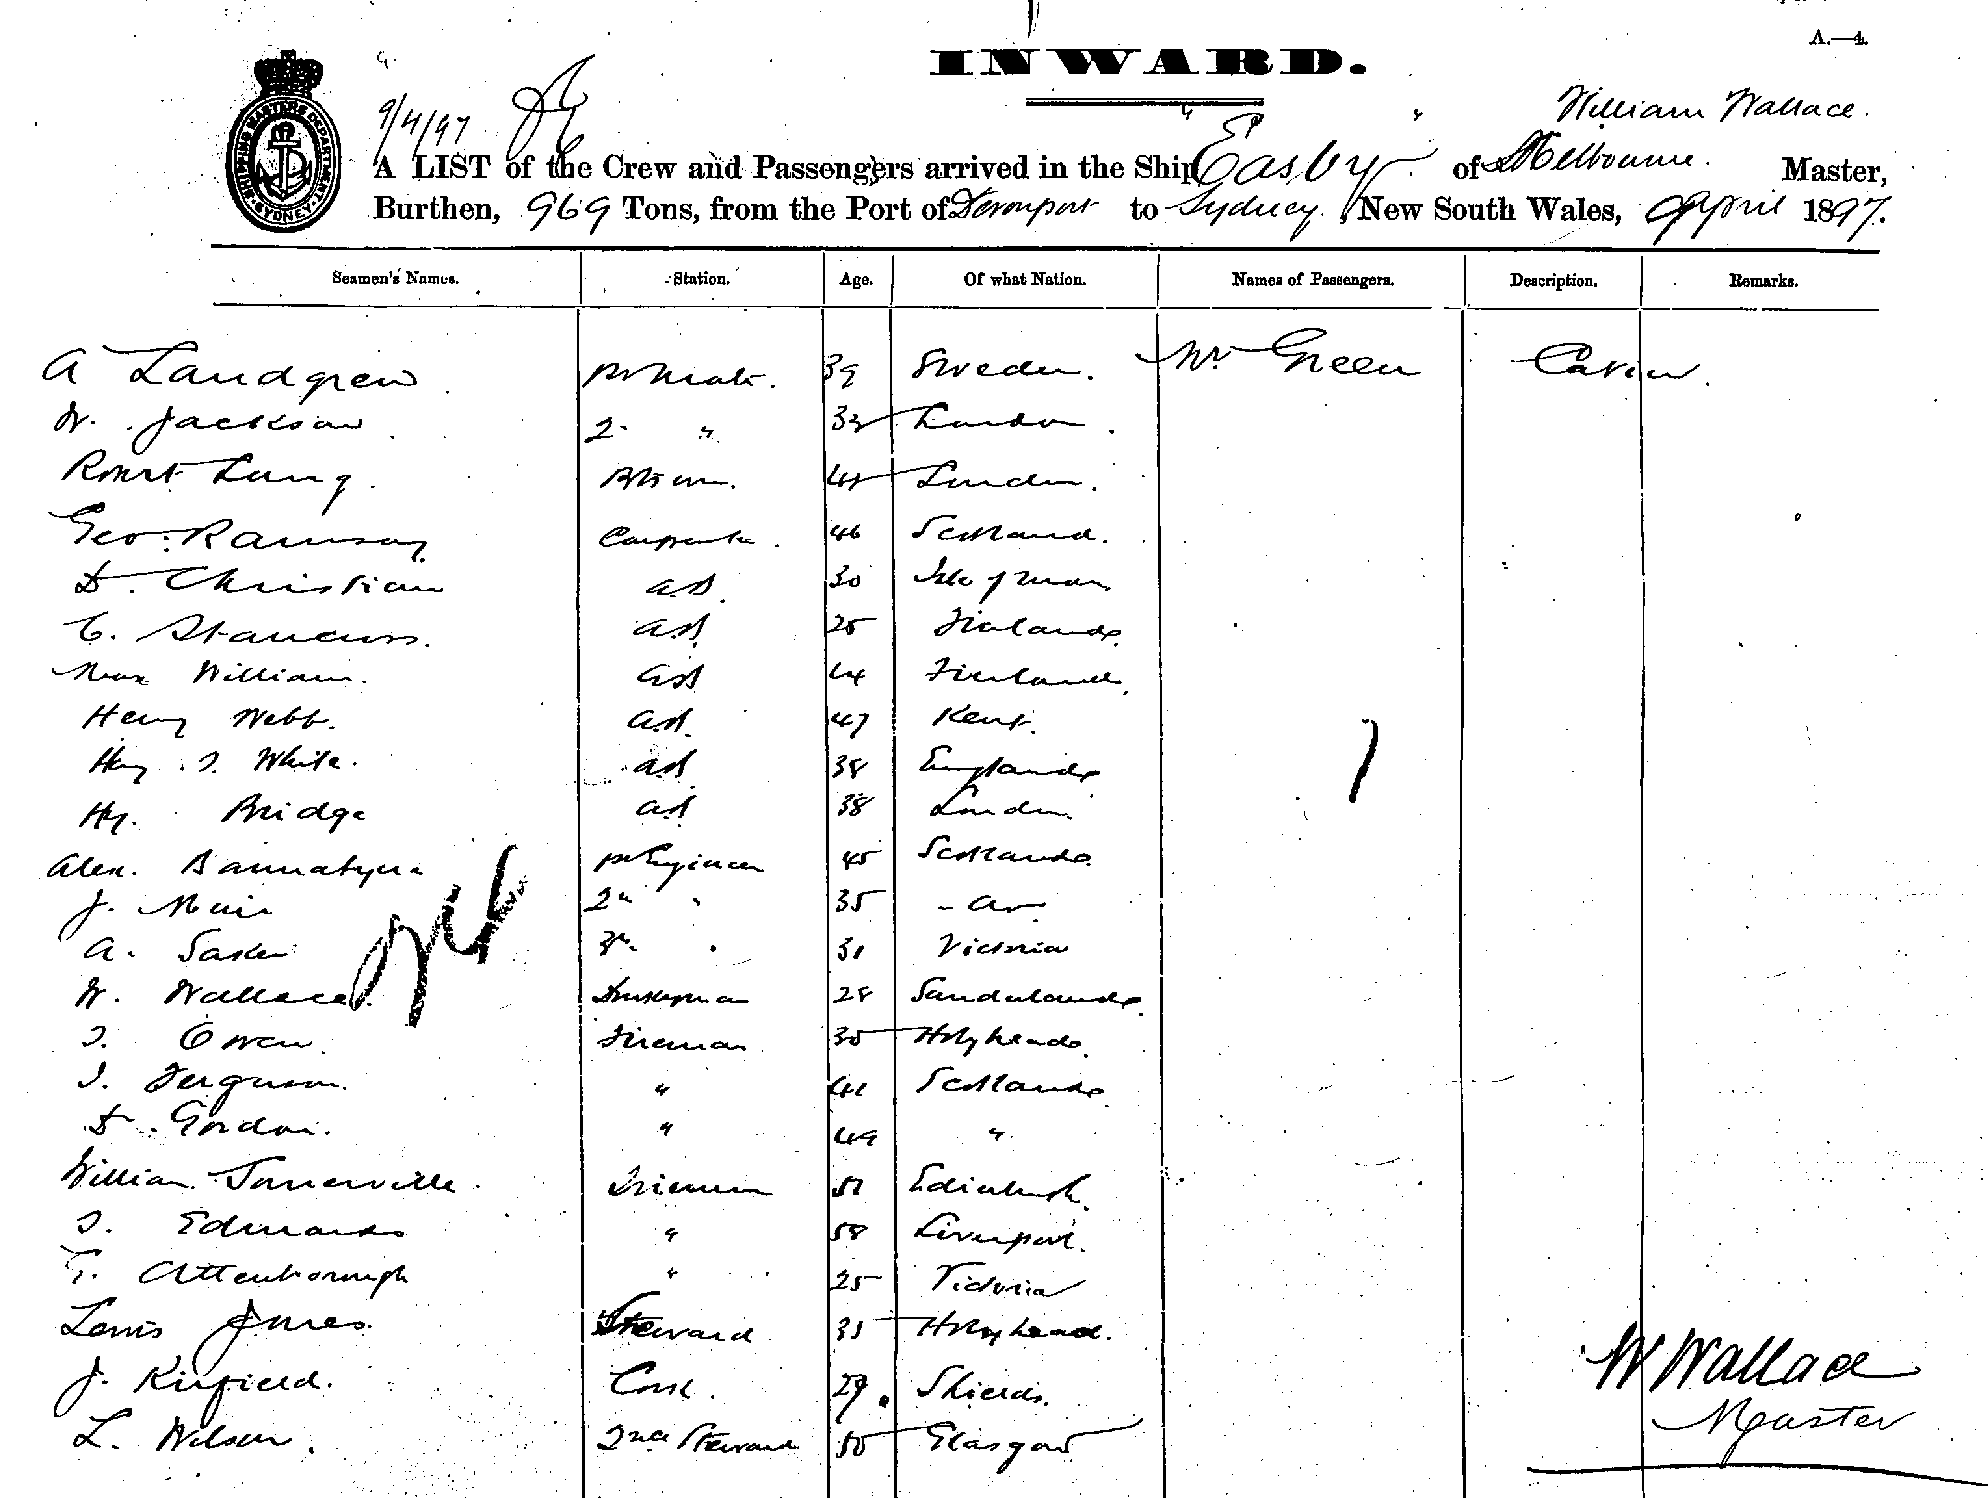 A.—4.
INWARD.
9/4/97
William Wallace.
A LIST of the Crew and Passengers arrived in the Ship Easby of Melbourne. Master,
Burthen, 969 Tons, from the Port of Devonport to Sydney, New South Wales, April 1897.
SHIPPING MASTERS DEPARTMENT SYDNEY
Seamen's Names. Station. Age. Of what Nation. Names of Passengers. Description. Remarks.
A Landgren 39 Sweden. Mr Green
W. Jackson 2 " London.
Robert Lang London.
Geo. Ramsay 46 Scotland.
D. Christian A.B. 30 Isle of man
C. A.B. 25 Finland
William. A.B. 44 Finland
Henry Webb. A.B. 47 Kent.
Hy. White. A.B. 38 England
Hy. Bridge A.B. 38 London
Alex. Bannatyne 1st Engineer 45 Scotland
J. Muir 2nd " 35
A. 3rd " 31 Victoria
W. Wallace. 28
Owen Fireman 35 Holyhead
Ferguson. " Scotland
D. Gordon. " 49 "
William Somerville. Fireman 51 Edinburgh.
Edwards " 58 Liverpool.
Attenborough " 25 Victoria
Lewis Jones. Steward 35 Holyhead.
J. Kirfield. Cook. 29. Shields.
L. Wilson. 2nd Steward 50 Glasgow
W Wallace
Master